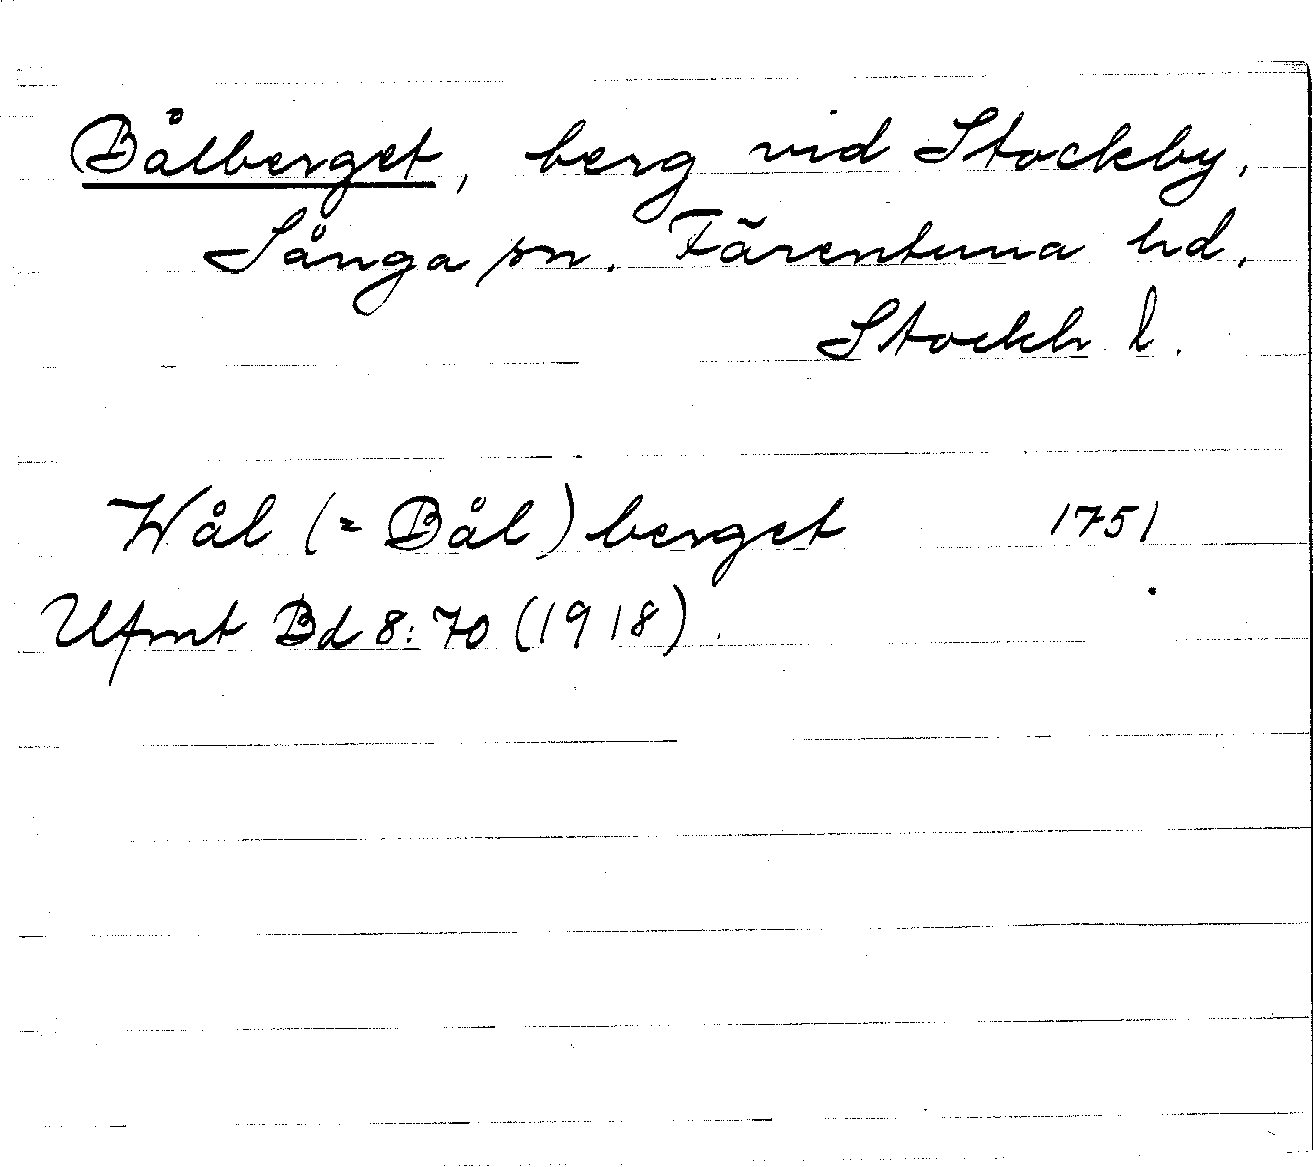 Bålberget, berg vid Stockby,
Sånga sn. Färentuna hd,
Stockh l.
Wål (= Bål) berget 1751
Ufmt Bd 8: 70 (1918).